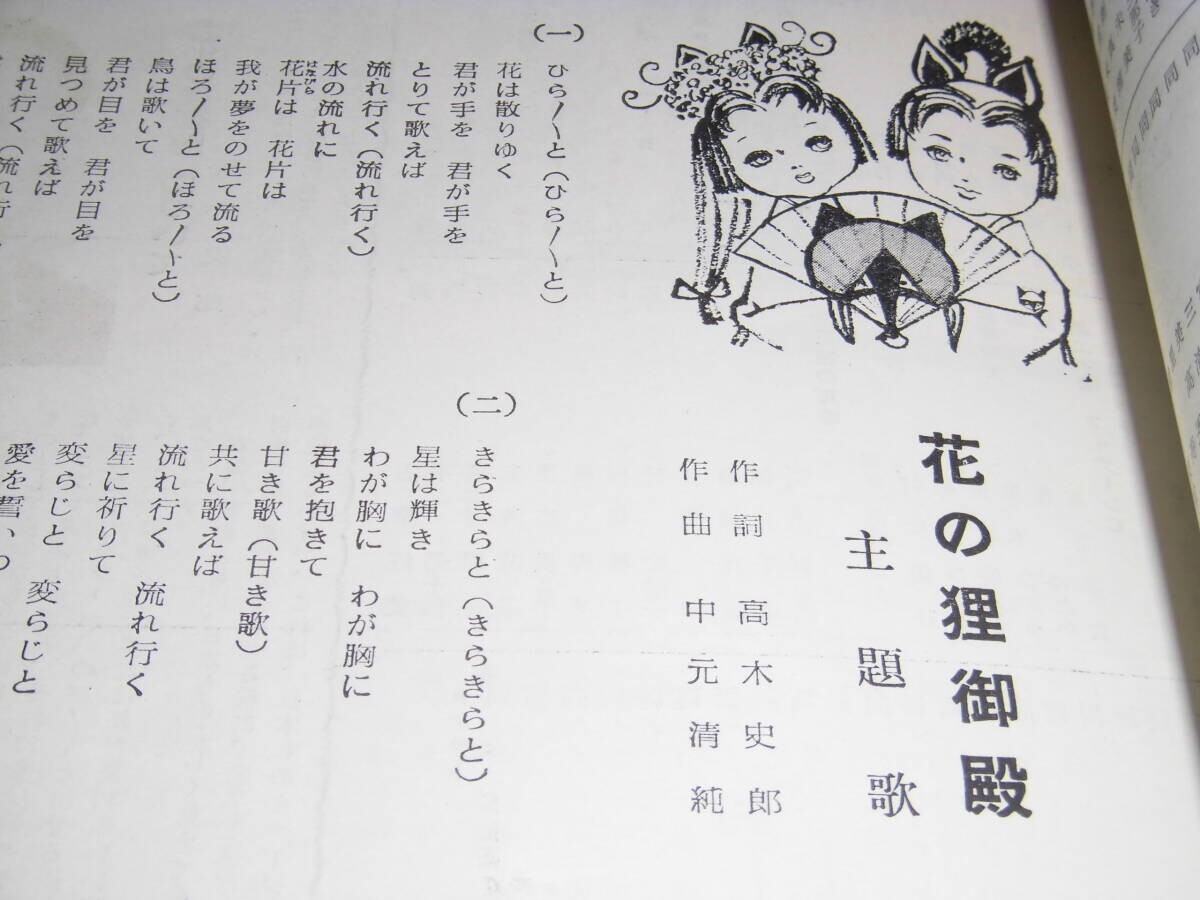 花の狸御殿
主題歌
作詞 高木史郎
作曲 中元清純
(一)
ひら〳〵と(ひら〳〵と)
花は散りゆく
君が手を 君が手を
とりて歌えば
流れ行く(流れ行く)
水の流れに
花片は 花片は
我が夢をのせて流る
ほろ〳〵と(ほろ〳〵と)
鳥は歌いて
君が目を 君が目を
見つめて歌えば
流れ行く(流れ行
(二)
きらきらと(きらきらと)
星は輝き
わが胸に わが胸に
君を抱きて
甘き歌(甘き歌)
共に歌えば
流れ行く 流れ行く
星に祈りて
変らじと 変らじと
愛を誓いつ